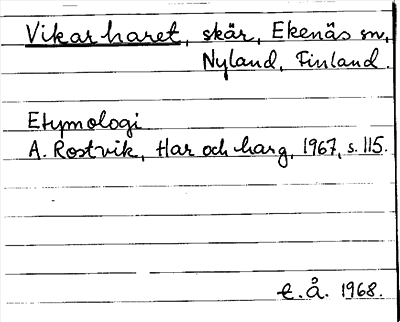 Vikarharet, skär, Ekenäs sn,
Nyland, Finland.
Etymologi
A. Rostvik, Har och harg, 1967, s. 115.
t.å. 1968.